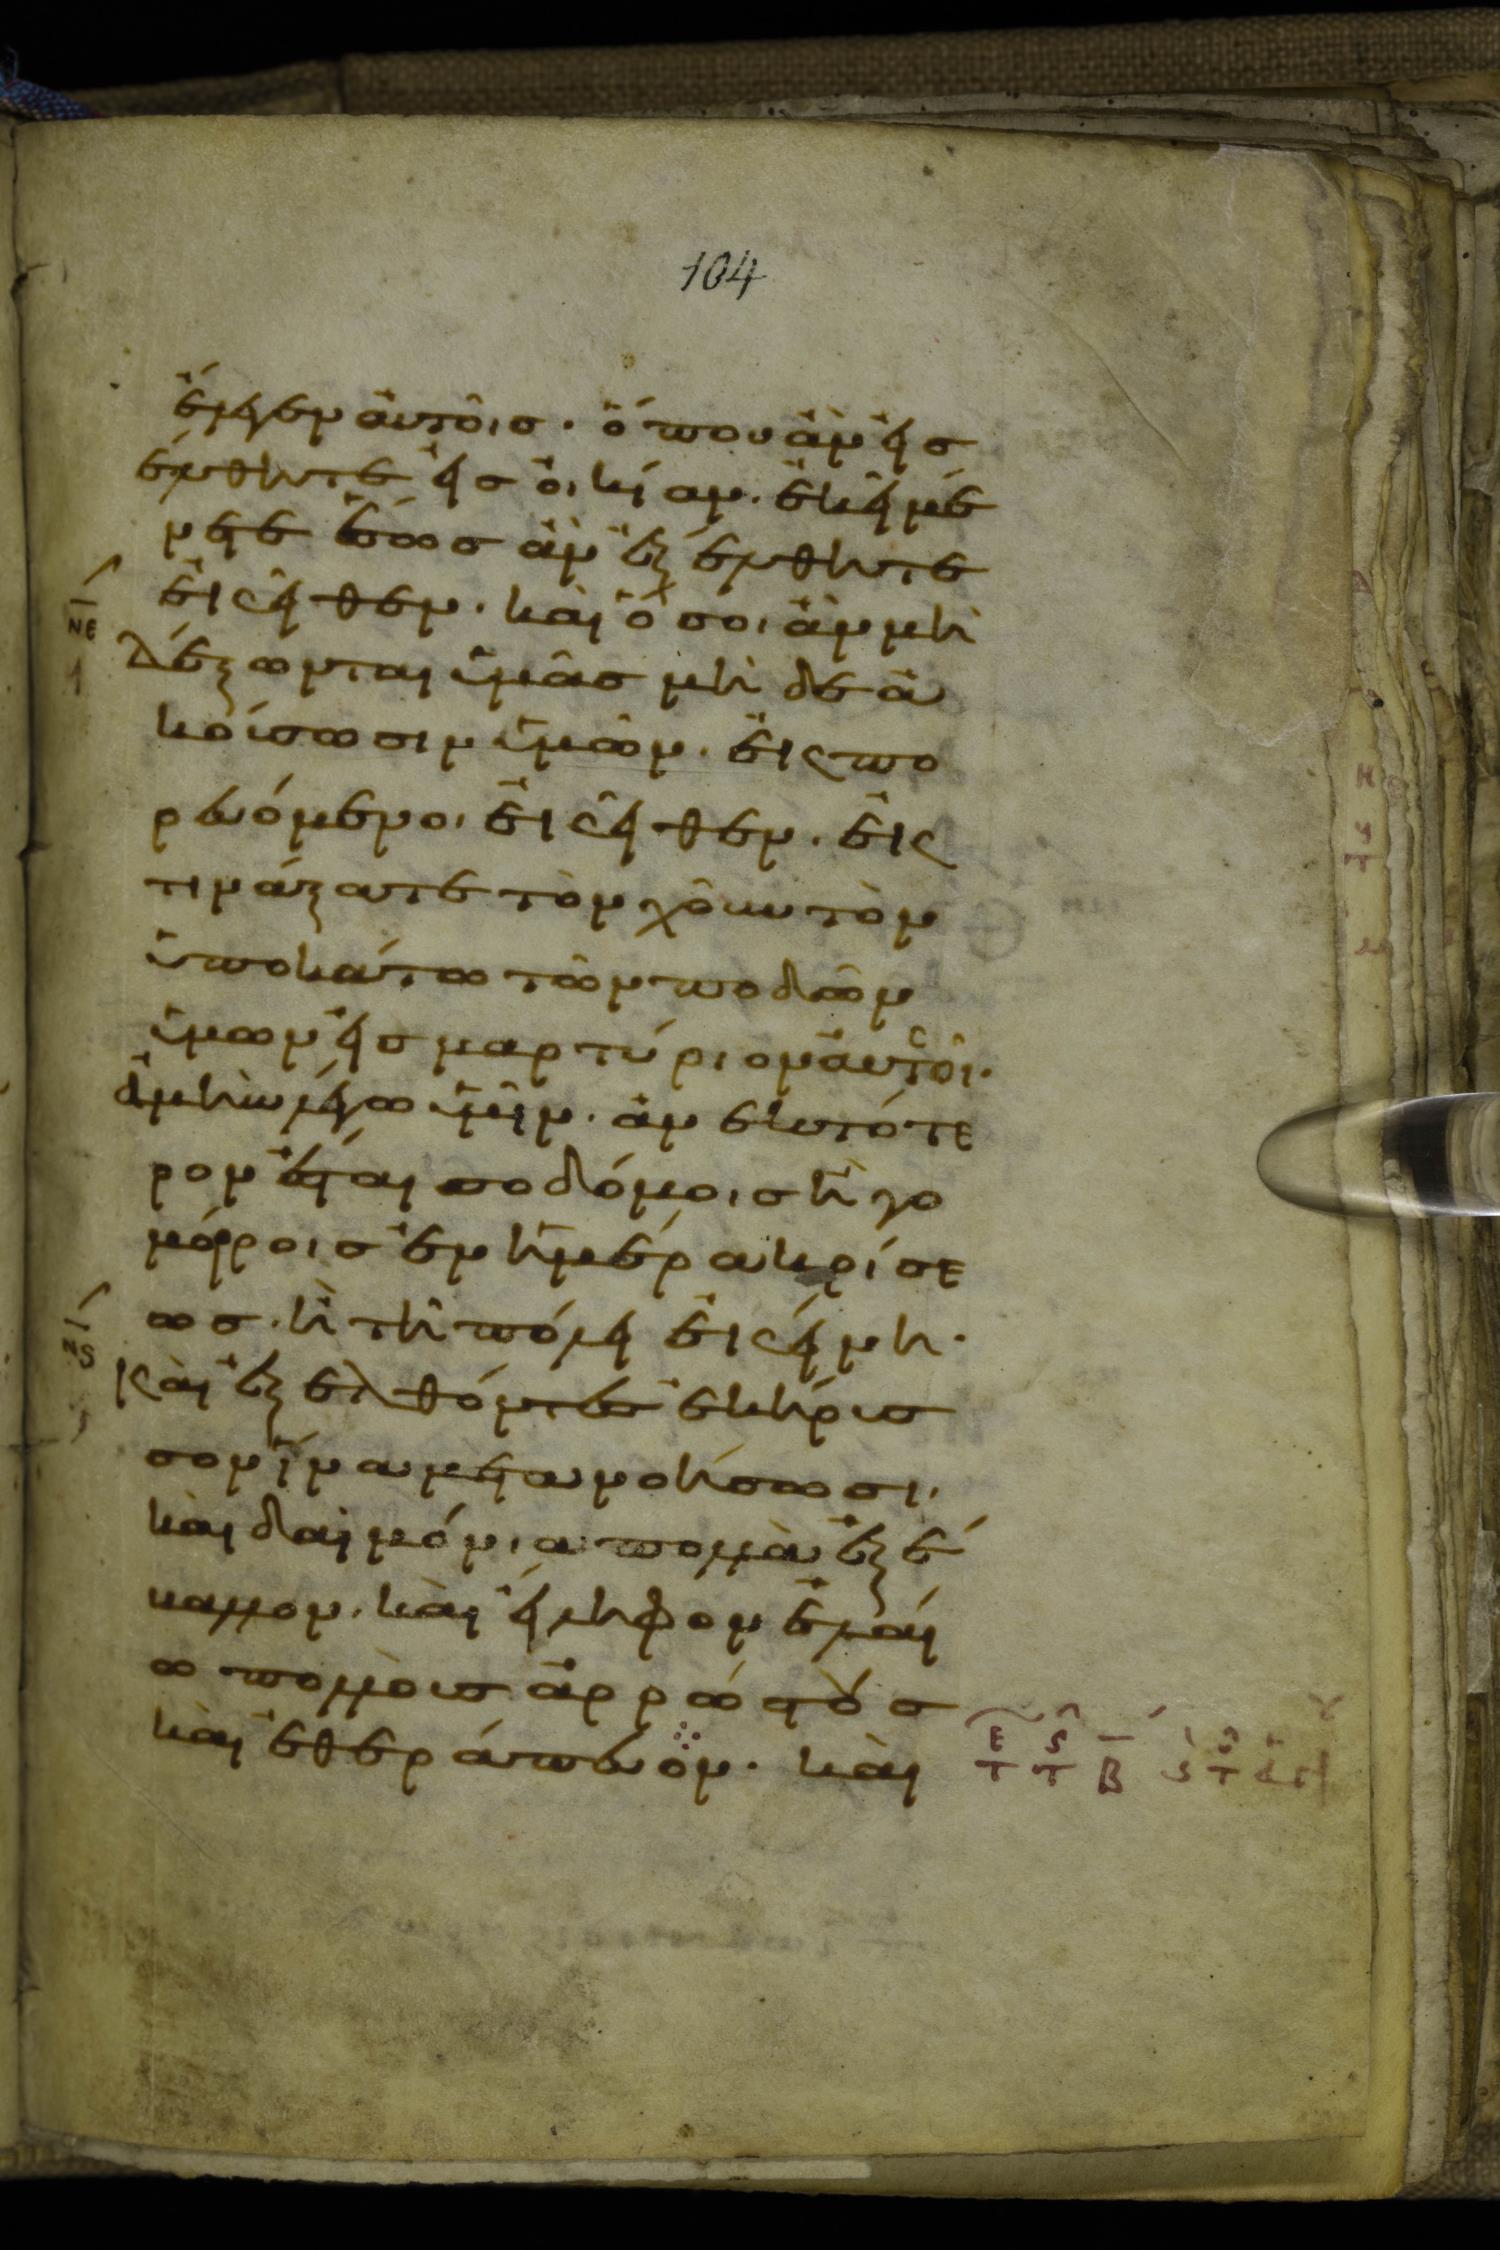 104
ἔλεγεν αὐτοῖς· ὅπου ἂν εἰσ
έλθητε εἰς οἰκίαν· ἐκεῖ μέ
νετε ἕως ἂν ἐξέλθητε
ἐκεῖθεν· καὶ ὅσοι ἂν μὴ
ΝΕ
δέξωνται ὑμᾶς μὴ δὲ ἀ
κούσωσιν ὑμῶν· ἐκπο
ρευόμενοι ἐκεῖθεν· ἐκ
τινάξατε τὸν χοῦν τὸν
ὑποκάτω τῶν ποδῶν
ὑμῶν εἰς μαρτύριον αὐτοῖς·
ἀμὴν λέγω ὑμῖν· ἀνεκτότε
ρον ἔσται σοδόμοις ἢ γο
μόρροις ἐν ἡμέρα κρίσε
ως· ἢ τῆ πόλει ἐκείνη·
Νϛ
καὶ ἐξελθόντες ἐκήρυσ
σον ἵνα μετανοήσωσι·
καὶ δαιμόνια πολλὰ ἐξέ
βαλλον· καὶ ἤλειφον ἐλαί
ω πολλοὺς ἀρρώστους
καὶ ἐθεράπευον· καὶ